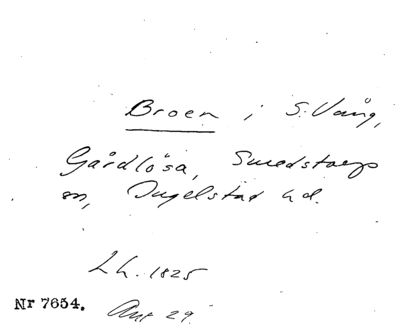 Broen i S. Vång,
Gårdlösa, Smedstorps
sn, Ingelstad hd.
Lh. 1825
Nr 7654. Ant 29.